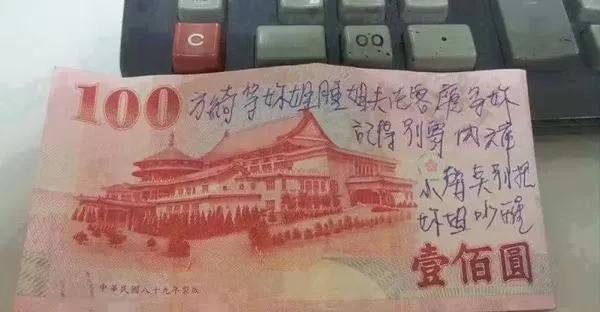 C
00
100
方綺等妳姐睡姐夫在客廳等妳
記得別穿内褲
小聲點別把
妳姐吵醒
壹佰圓
中華民國八十九年製版